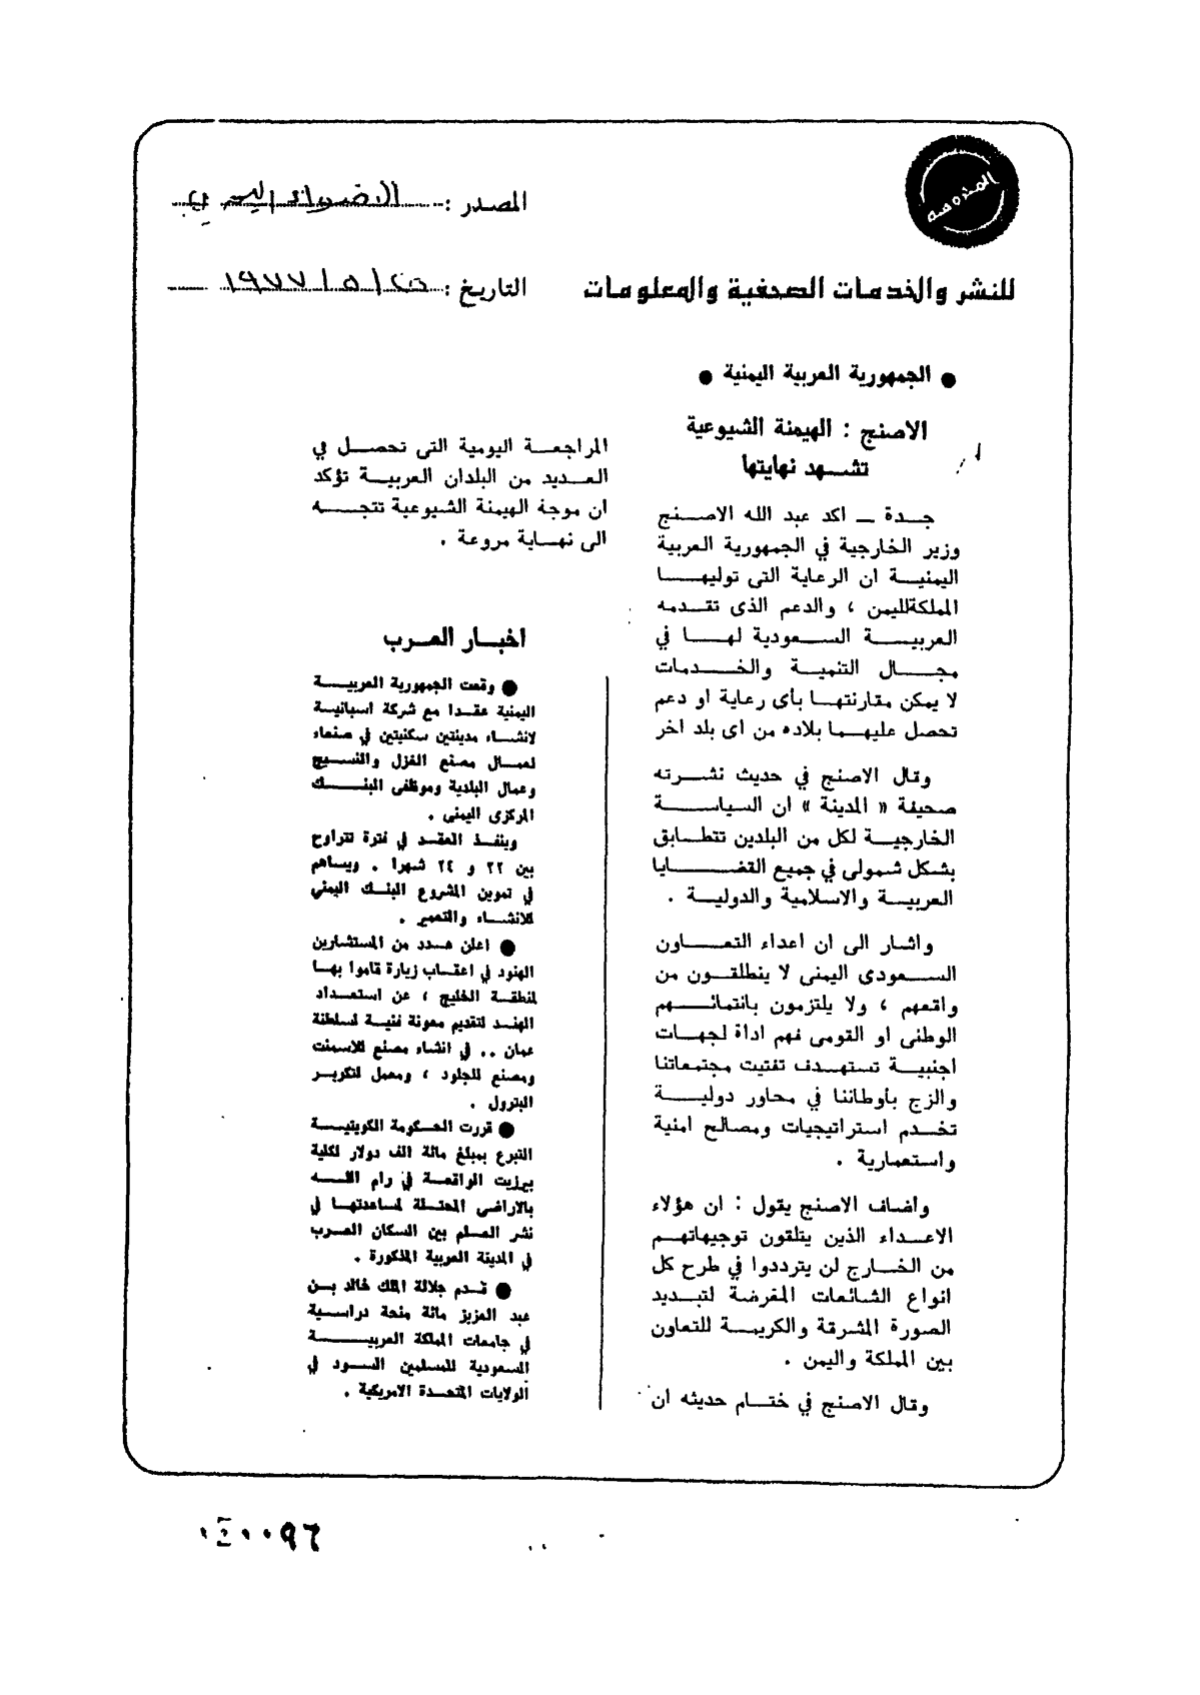 المصدر : الاضواء
التاريخ : ٢٦ / ٥ / ١٩٧٧
للنشر والخدمات الصحفية والمعلومات
● الجمهورية العربية اليمنية ●
الاصنج : الهيمنة الشيوعية
تشهد نهايتها
جدة ـ اكد عبد الله الاصنج
وزير الخارجية في الجمهورية العربية
اليمنية ان الرعاية التى توليها
المملكةلليمن ، والدعم الذى تقدمه
العربية السعودية لها في
مجال التنمية والخدمات
لا يمكن مقارنتها بأى رعاية او دعم
تحصل عليهما بلاده من اى بلد اخر
وقال الاصنج في حديث نشرته
صحيفة « المدينة » ان السياسة
الخارجية لكل من البلدين تتطابق
بشكل شمولى في جميع القضايا
العربية والاسلامية والدولية .
واشار الى ان اعداء التعاون
السعودى اليمنى لا ينطلقون من
واقعهم ، ولا يلتزمون بانتمائهم
الوطنى او القومى فهم اداة لجهات
اجنبية تستهدف تفتيت مجتمعاتنا
والزج بأوطاننا في محاور دولية
تخدم استراتيجيات ومصالح امنية
واستعمارية .
واضاف الاصنج يقول : ان هؤلاء
الاعداء الذين يتلقون توجيهاتهم
من الخارج لن يترددوا في طرح كل
انواع الشائعات المغرضة لتبديد
الصورة المشرقة والكريمة للتعاون
بين المملكة واليمن .
وقال الاصنج في ختام حديثه ان
المراجعة اليومية التى تحصل في
العديد من البلدان العربية تؤكد
ان موجة الهيمنة الشيوعية تتجه
الى نهاية مروعة .
اخبار العرب
● وقعت الجمهورية العربية
اليمنية عقدا مع شركة اسبانية
لانشاء مدينتين سكنيتين في صنعاء
لعمال مصنع الغزل والنسيج
وعمال البلدية وموظفى البنك
المركزى اليمنى .
وينفذ العقد في فترة تتراوح
بين ٢٢ و ٢٤ شهرا . ويساهم
في تموين المشروع البنك اليمنى
للانشاء والتعمير .
● اعلن عدد من المستشارين
الهنود في اعقاب زيارة قاموا بها
لمنطقة الخليج ، عن استعداد
الهند لتقديم معونة فنية لسلطنة
عمان .. في انشاء مصنع للاسمنت
ومصنع للجلود ، ومعمل لتكرير
البترول .
● قررت الحكومة الكويتية
التبرع بمبلغ مائة الف دولار لكلية
بيرزيت الواقعة في رام الله
بالاراضى المحتلة لمساعدتها في
نشر العلم بين السكان العرب
في المدينة العربية المذكورة .
● قدم جلالة الملك خالد بن
عبد العزيز مائة منحة دراسية
في جامعات المملكة العربية
السعودية للمسلمين السود في
الولايات المتحدة الامريكية .